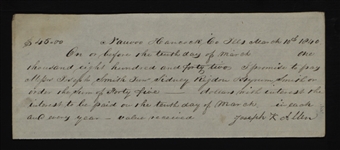 $45.00 Nauvoo Hancock Co Ills March 10th 1840
On or before the tenth day of March one
thousand eight hundred and forty two I promise to pay
Joseph Smith Sidney Rigdon Hyrum Smith or
order the sum of Forty five dollars with interest the
interest to be paid on the tenth day of March in each
and every year value received Joseph K. Allen